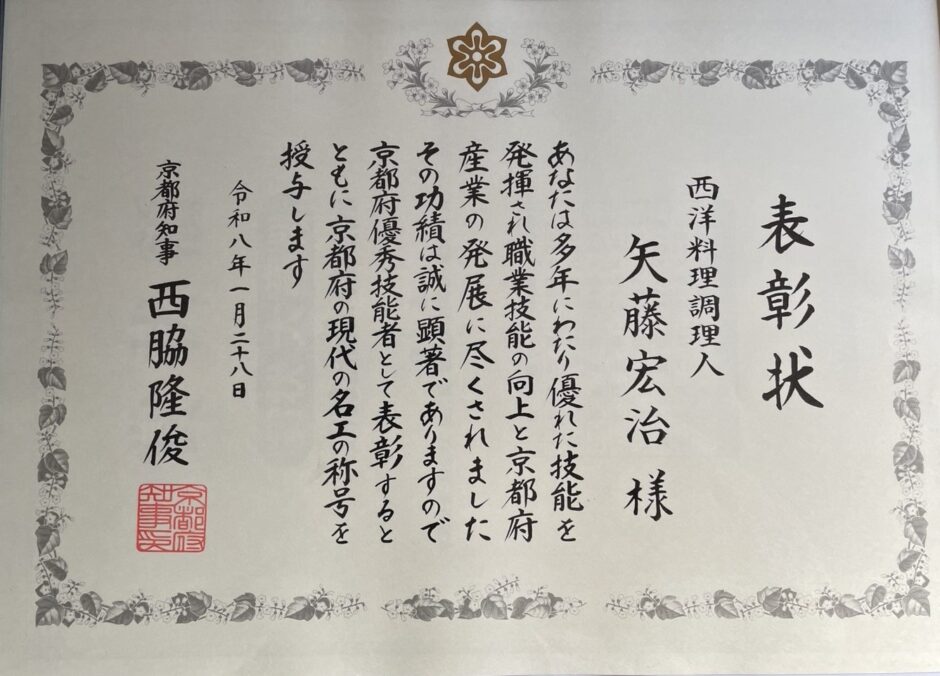 表彰状
西洋料理調理人
矢藤宏治様
あなたは多年にわたり優れた技能を
発揮され職業技能の向上と京都府
産業の発展に尽くされました
その功績は誠に顕著でありますので
京都府優秀技能者として表彰すると
ともに京都府の現代の名工の称号を
授与します
令和八年一月二十八日
京都府知事 西脇隆俊
京都府知事印